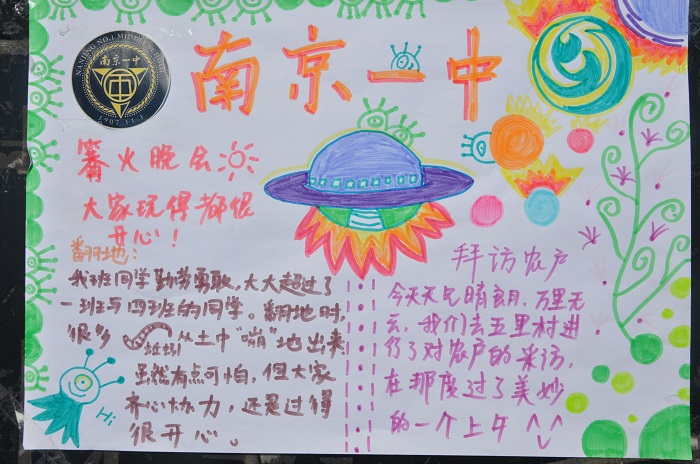 NANJING NO.1 MIDDLE SCHOOL
南京一中
1907.11.1
南京一中
篝火晚会
大家玩得都很
开心！
翻地：
我班同学勤劳勇敢，大大超过了
一班与四班的同学。翻地时，
很多 蚯蚓 从土中“嘣”地出来
虽然有点可怕，但大家
齐心协力，还是过得
很开心。
Hi
拜访农户
今天天气晴朗，万里无
云，我们去五里村进
行了对农户的采访，
在那度过了美妙
的一个上午